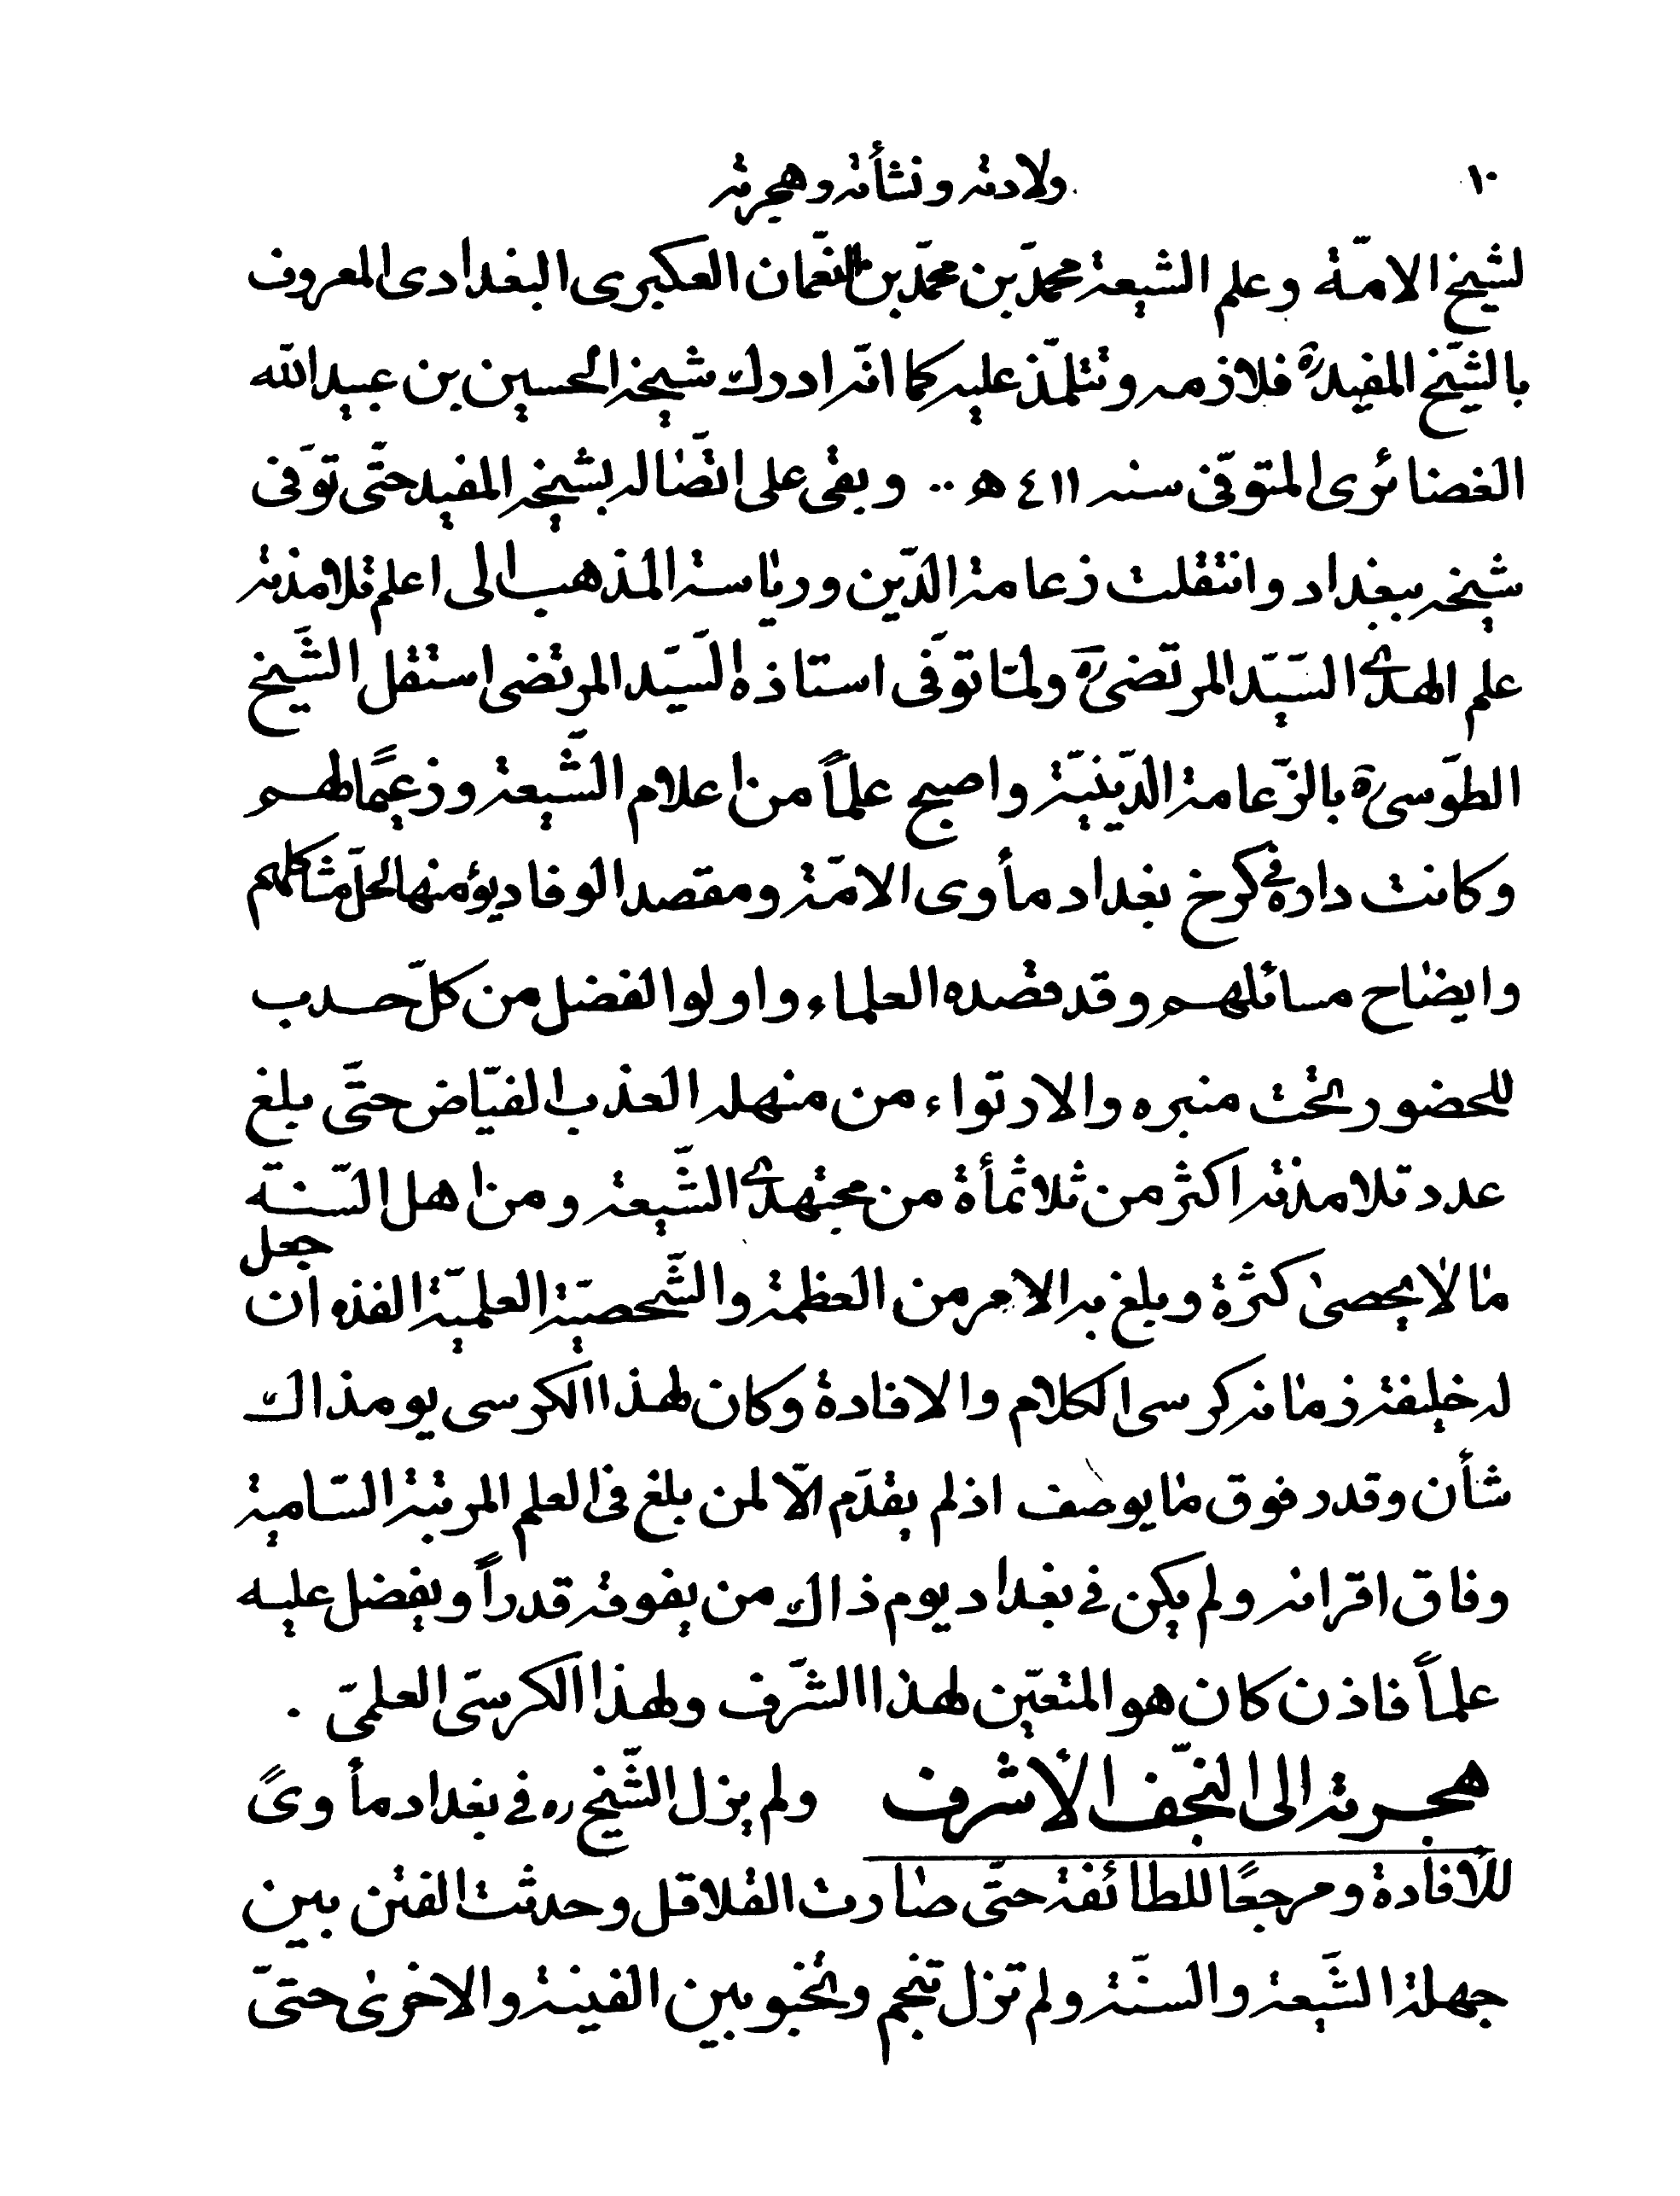 ١٠
ولادته و نشأته و هجرته
لشيخ الامّة وعلم الشيعة محمّد بن محمّد بن النعّمان العكبرى البغدادى المعروف
بالشّيخ المفيد ره فلازمه وتتلمّذ عليه كما انّه ادرك شيخه الحسين بن عبيد الله
الغضائرى المتوفّى سنه ٤١١ ھ .. وبقى على اتّصاله بشيخه المفيد حتّى توّفى
شيخه ببغداد وانتقلت زعامة الدّين ورياسة المذهب الى اعلم تلامذته
علم الهدى السّيّد المرتضى ره ولمّا توّفى استاذه السّيّد المرتضى استقل الشّيخ
الطوّسى ره بالزّعامة الدّينيّة واصبح علماً من اعلام الشّيعة وزعيمًا لهم
وكانت داره فى كرخ بغداد مأوى الامّة ومقصد الوفاد يؤمنها لحلّ مشاكلهم
وايضاح مسائلهم وقد قصده العلماء واولوا الفضل من كلّ حدب
للحضور تحت منبره والارتواء من منهله العذب الفيّاض حتّى بلغ
عدد تلامذته اكثر من ثلاثمأة من مجتهدى الشّيعة ومن اهل السّنة
ما لا يحصى كثرة وبلغ به الامر من العظمة والشّخصيّة العلميّة الفذه ان جعل
له خليفة زمانه كرسى الكلام والافادة وكان لهذا الكرسى يومذاك
شأن وقدر فوق ما يوصف اذ لم يقدّم الّا لمن بلغ فى العلم المرتبة السّامية
وفاق اقرانه ولم يكن فى بغداد يوم ذاك من يفوقه قدراً ويفضل عليه
علماً فاذن كان هو المتعيّن لهذا الشّرف ولهذا الكرسّى العلمىّ .
هجرته الى النجّف الأشرف ولم يزل الشّيخ ره فى بغداد مأوىً
للافادة ومرجعًا للطائفة حتّى صارت القلاقل وحدثت الفتن بين
جهلة الشّيعة والسنّة ولم تزل تنجم وتخبو بين الفينة والاخرى حتىّ